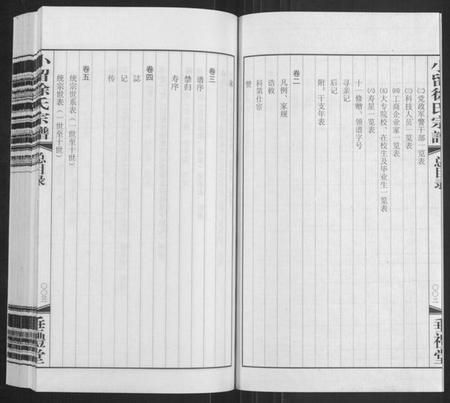 小留徐氏宗譜
总目录
垂禮堂
㈡党政军警干部一览表
㈢科技人员一览表
㈣工商企业家一览表
㈤大专院校、在校生及毕业生一览表
㈥寿星一览表
十一修赠、领谱字号
寻亲记
后记
附：干支年表
卷二
凡例、家规
诰敕
科第仕宦
赞
卷三
谱序
禁归
寿序
卷四
誌
记
传
卷五
统宗世系表（一世至十世）
统宗世表（一世至十世）
小留徐氏宗譜
总目录
垂禮堂